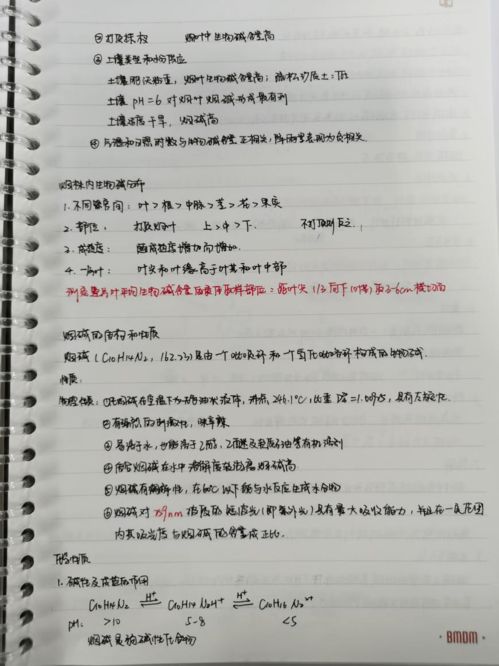 ③打顶抹杈 烟叶中生物碱含量高
④土壤类型和水分反应
土壤肥沃粘重,烟叶生物碱含量高;疏松沙质土:低
土壤 pH=6 对烟叶烟碱形成最有利
土壤适度干旱,烟碱高
⑤气温和日照时数与生物碱含量正相关;降雨量表现为负相关.
烟株内生物碱分布
1. 不同器官间:叶>根>中脉>茎>花>果实
2. 部位: 打顶烟叶 上>中>下. 不打顶则反之.
3. 成熟度: 随成熟度增加而增加.
4. 一片叶: 叶尖和叶缘高于叶基和叶中部
测定整片叶平均生物碱含量 取样部位:距叶尖 1/3 向下 2-6cm 横切向
烟碱的结构和性质
烟碱(C10H14N2, 162.23)是由一个吡啶环和一个氢化吡咯环构成的生物碱.
性质.
物理性质:①烟碱在室温下为无色油状液体,沸点246.1℃,比重 =1.0095,具有左旋性.
②有强烈的刺激性,味辛辣
③易溶于水,也能溶于乙醇,乙醚及石油等有机溶剂
④ 烟碱在水中溶解度 烟碱高
⑤烟碱有 性,在60℃以下能与水反应生成水合物
⑥烟碱对259nm 的 (即紫外光)具有最大吸收能力,并且在一定范围
内其吸光度与烟碱的含量成正比.
化学性质
1. 碱性及成盐的作用
C10H14N2 ⇌ C10H14N2H+ ⇌ C10H16N2²+
H+ H+
pH: >10 5-8 <5
烟碱是弱碱性化合物
BMDM